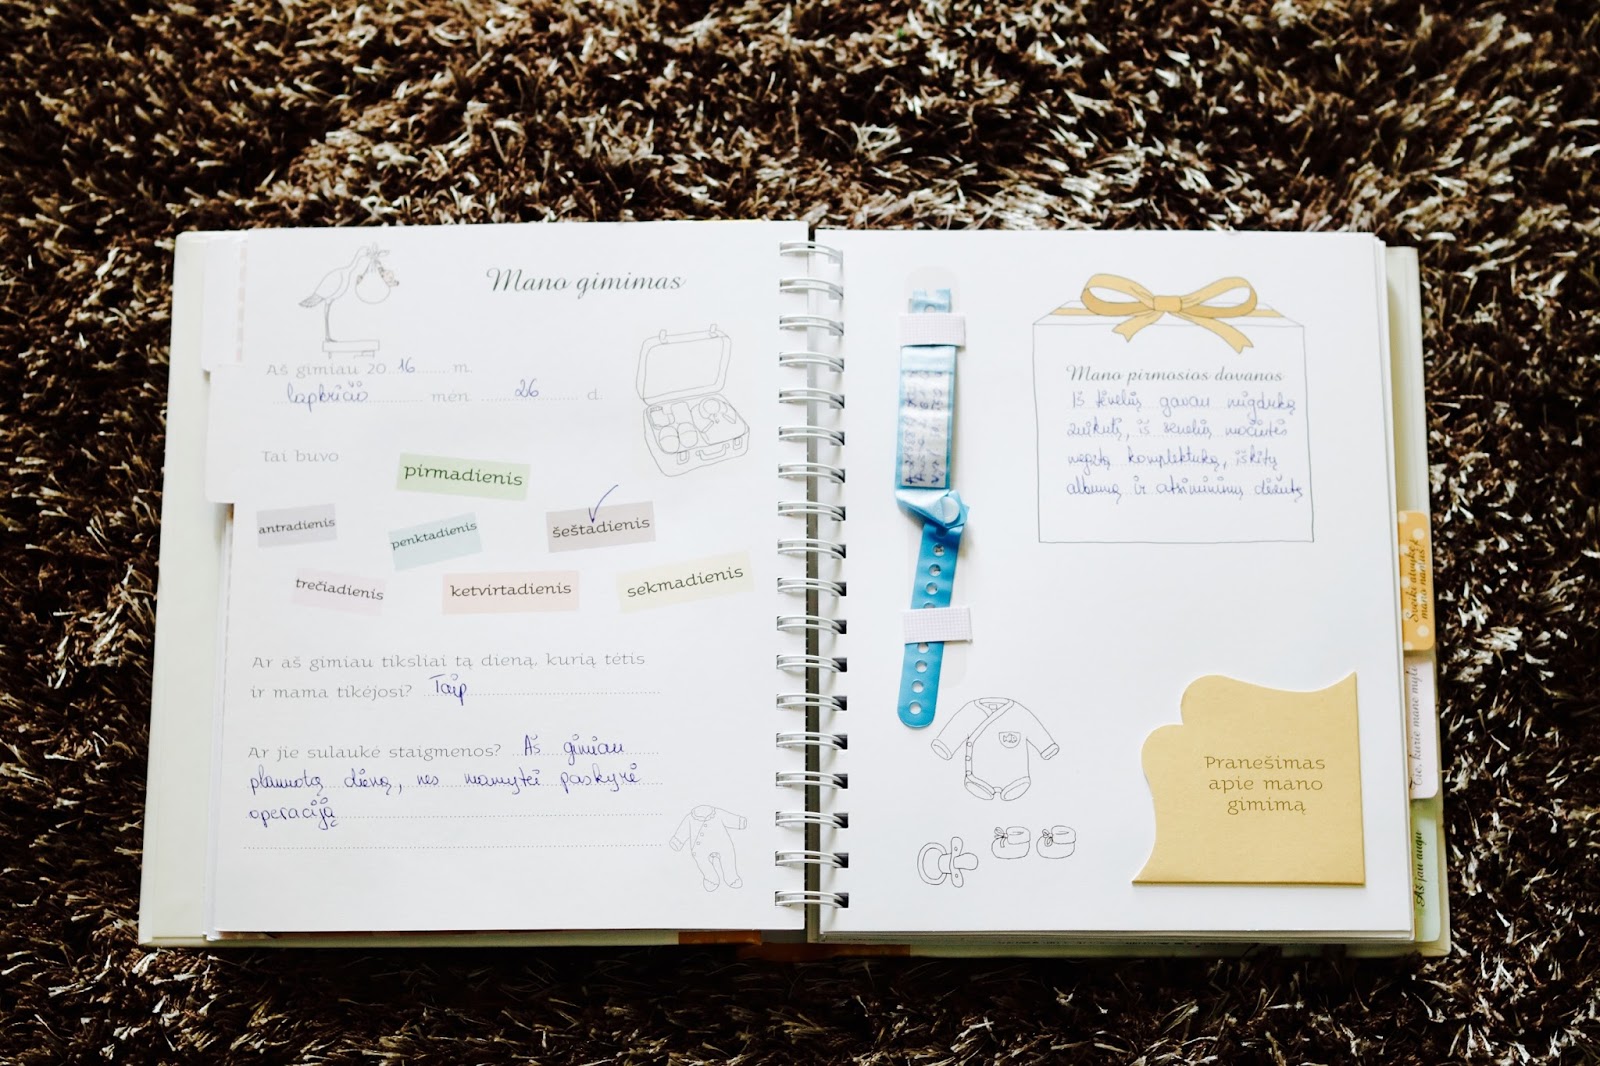 Mano gimimas
Aš gimiau 20 16 m.
lapkričio mėn. 26 d.
Tai buvo
pirmadienis
antradienis
penktadienis
šeštadienis
trečiadienis
ketvirtadienis
sekmadienis
Ar aš gimiau tiksliai tą dieną, kurią tėtis
ir mama tikėjosi? Taip
Ar jie sulaukė staigmenos? Aš gimiau
planuotą dieną, nes mamytei paskyrė
operaciją
Mano pirmosios dovanos
Iš tėvelių gavau migduką
zuikutį, iš senelių močiutės
megztą komplektuką, iš kitų
albumą ir atsiminimų dėžutę
Pranešimas
apie mano
gimimą
Sveiki atvykę į
mano namus!
Tie, kurie mane myli
Aš jau augu